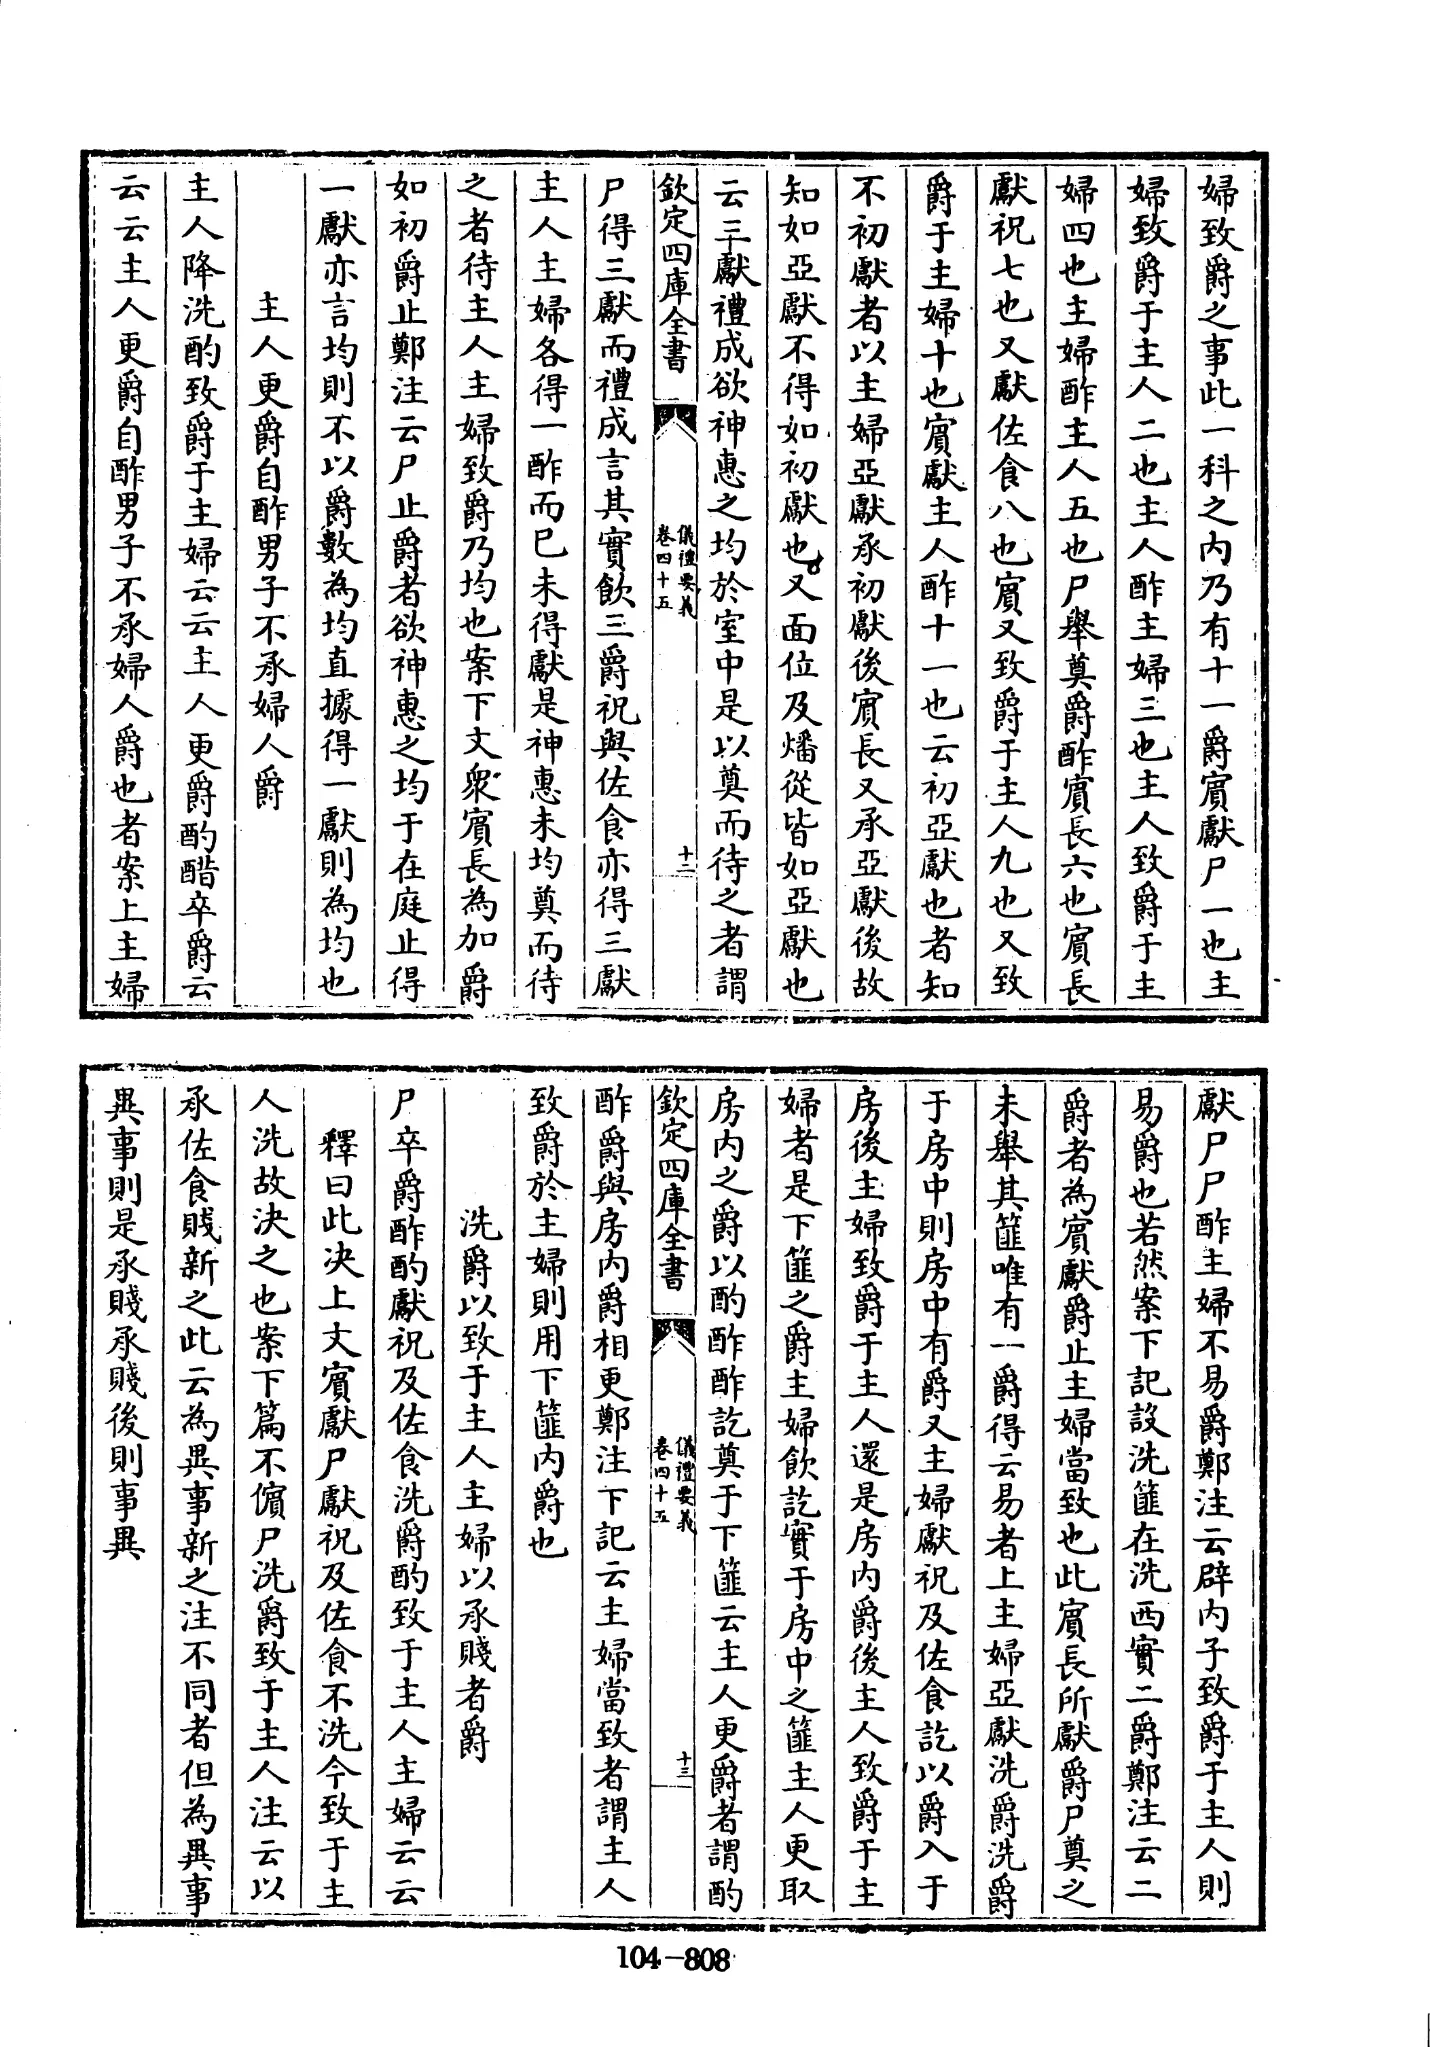 婦致爵之事此一科之内乃有十一爵賔獻尸一也主
婦致爵于主人二也主人酢主婦三也主人致爵于主
婦四也主婦酢主人五也尸舉奠爵酢賔長六也賔長
獻祝七也又獻佐食八也賔又致爵于主人九也又致
爵于主婦十也賔獻主人酢十一也云初亞獻也者知
不初獻者以主婦亞獻承初獻後賔長又承亞獻後故
知如亞獻不得如初獻也又面位及燔從皆如亞獻也
云三獻禮成欲神惠之均於室中是以奠而待之者謂
欽定四庫全書
儀禮要義
卷四十五
十二
尸得三獻而禮成言其實飲三爵祝與佐食亦得三獻
主人主婦各得一酢而已未得獻是神惠未均奠而待
之者待主人主婦致爵乃均也案下文衆賔長為加爵
如初爵止鄭注云尸止爵者欲神惠之均于在庭止得
一獻亦言均則不以爵數為均直據得一獻則為均也
主人更爵自酢男子不承婦人爵
主人降洗酌致爵于主婦云云主人更爵酌醋卒爵云
云云主人更爵自酢男子不承婦人爵也者案上主婦
獻尸尸酢主婦不易爵鄭注云辟内子致爵于主人則
易爵也若然案下記設洗篚在洗西實二爵鄭注云二
爵者為賔獻爵止主婦當致也此賔長所獻爵尸奠之
未舉其篚唯有一爵得云易者上主婦亞獻洗爵洗爵
于房中則房中有爵又主婦獻祝及佐食訖以爵入于
房後主婦致爵于主人還是房内爵後主人致爵于主
婦者是下篚之爵主婦飲訖實于房中之篚主人更取
房内之爵以酌酢酢訖奠于下篚云主人更爵者謂酌
欽定四庫全書
儀禮要義
卷四十五
十三
酢爵與房内爵相更鄭注下記云主婦當致者謂主人
致爵於主婦則用下篚内爵也
洗爵以致于主人主婦以承賤者爵
尸卒爵酢酌獻祝及佐食洗爵酌致于主人主婦云云
釋曰此決上文賔獻尸獻祝及佐食不洗今致于主
人洗故決之也案下篇不儐尸洗爵致于主人注云以
承佐食賤新之此云為異事新之注不同者但為異事
異事則是承賤承賤後則事異
104-808